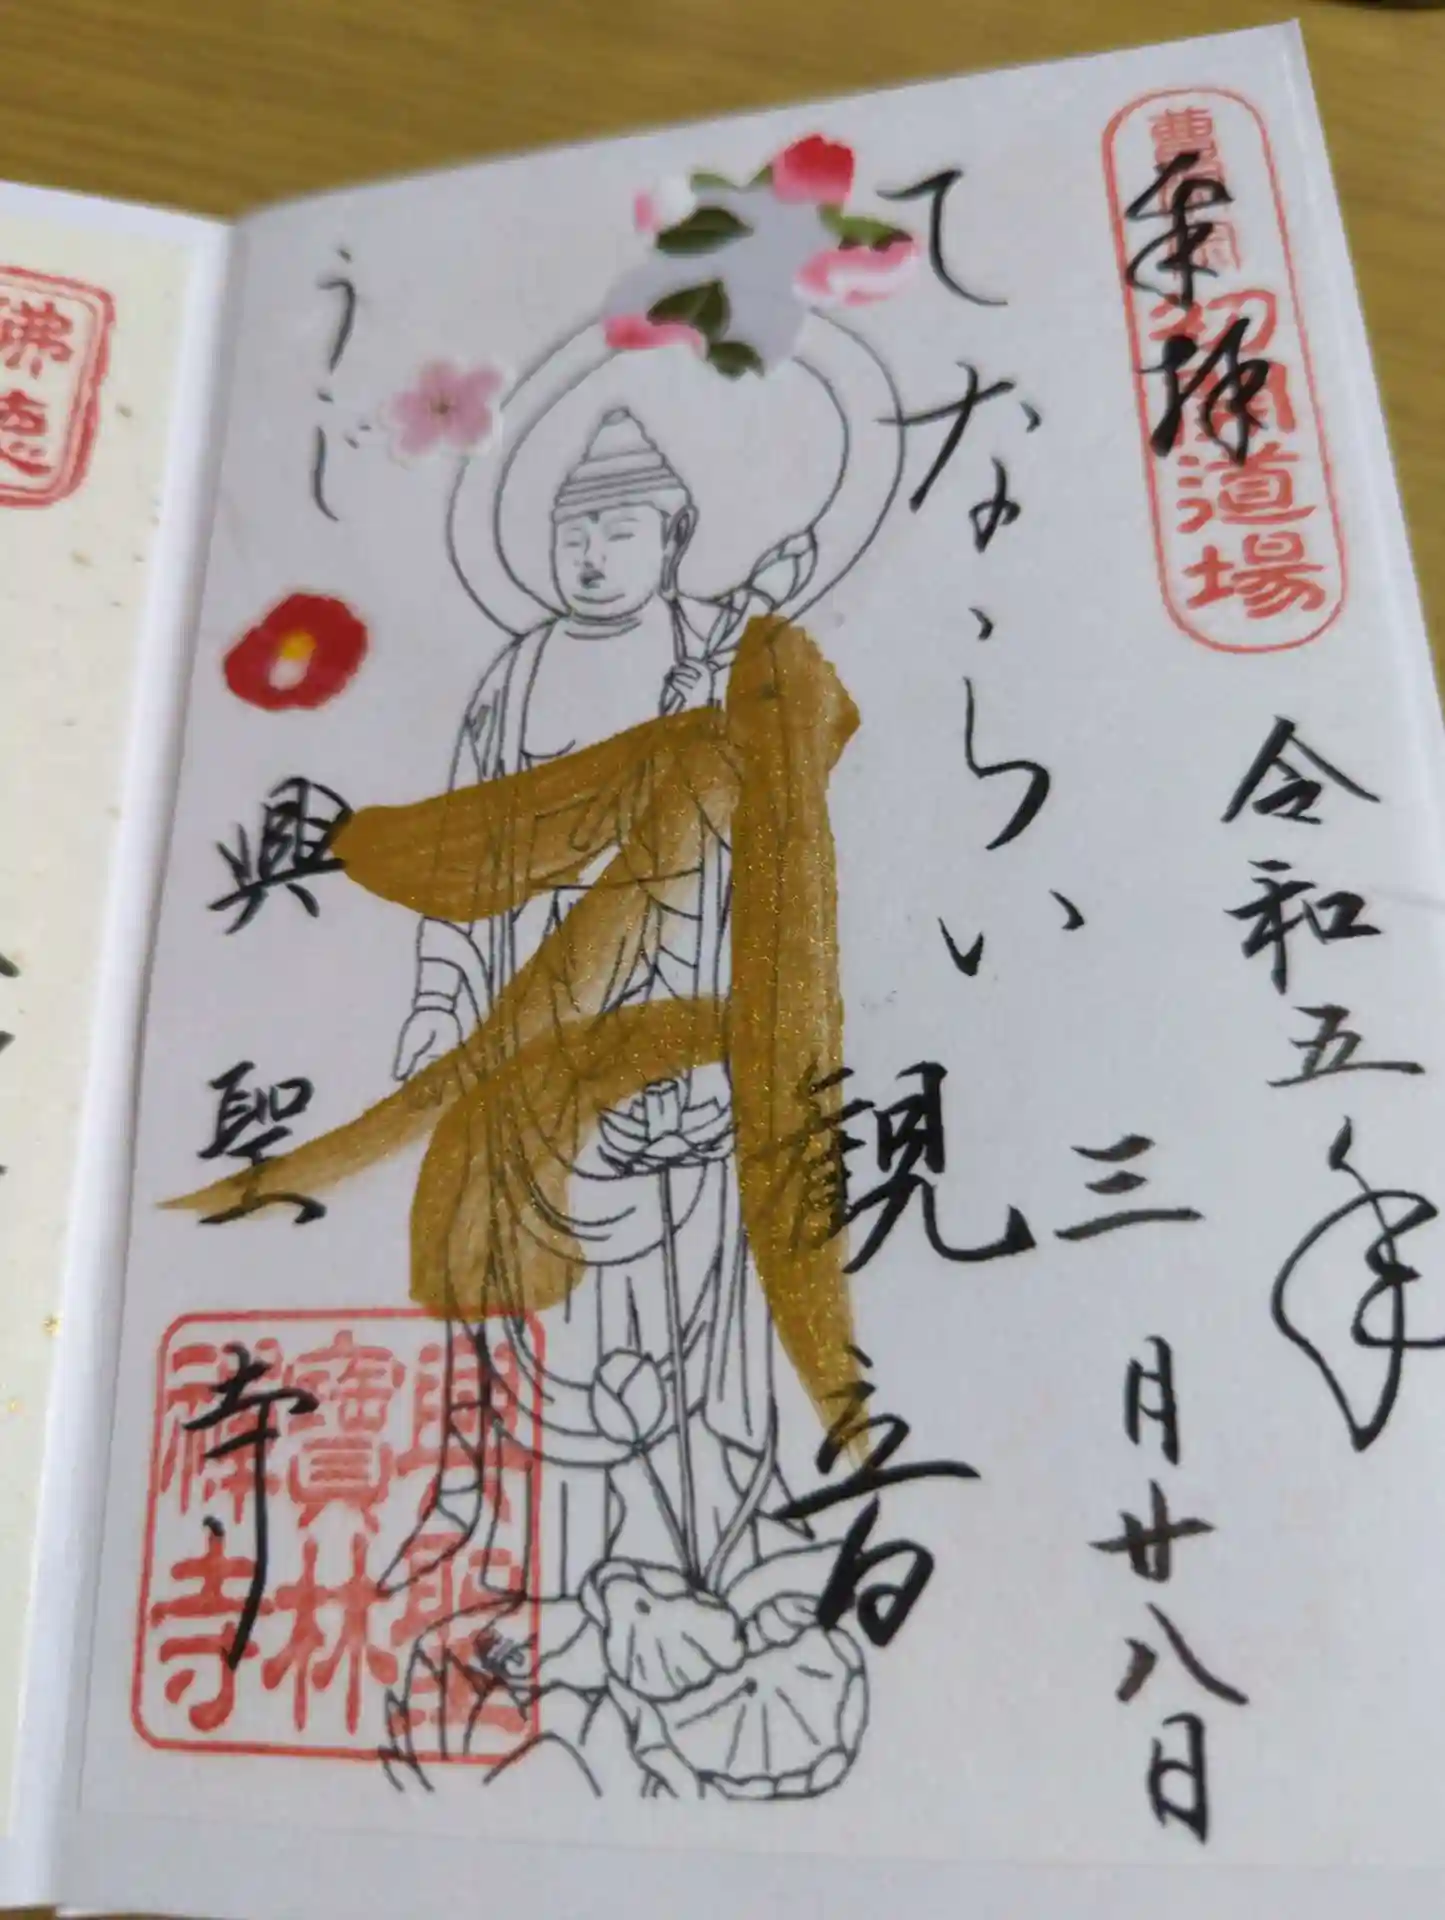 奉拝
曹洞宗
初開道場
令和五年
三月廿八日
てならい
観音
うじ
興聖寺
興聖
寶林
禅寺
佛徳